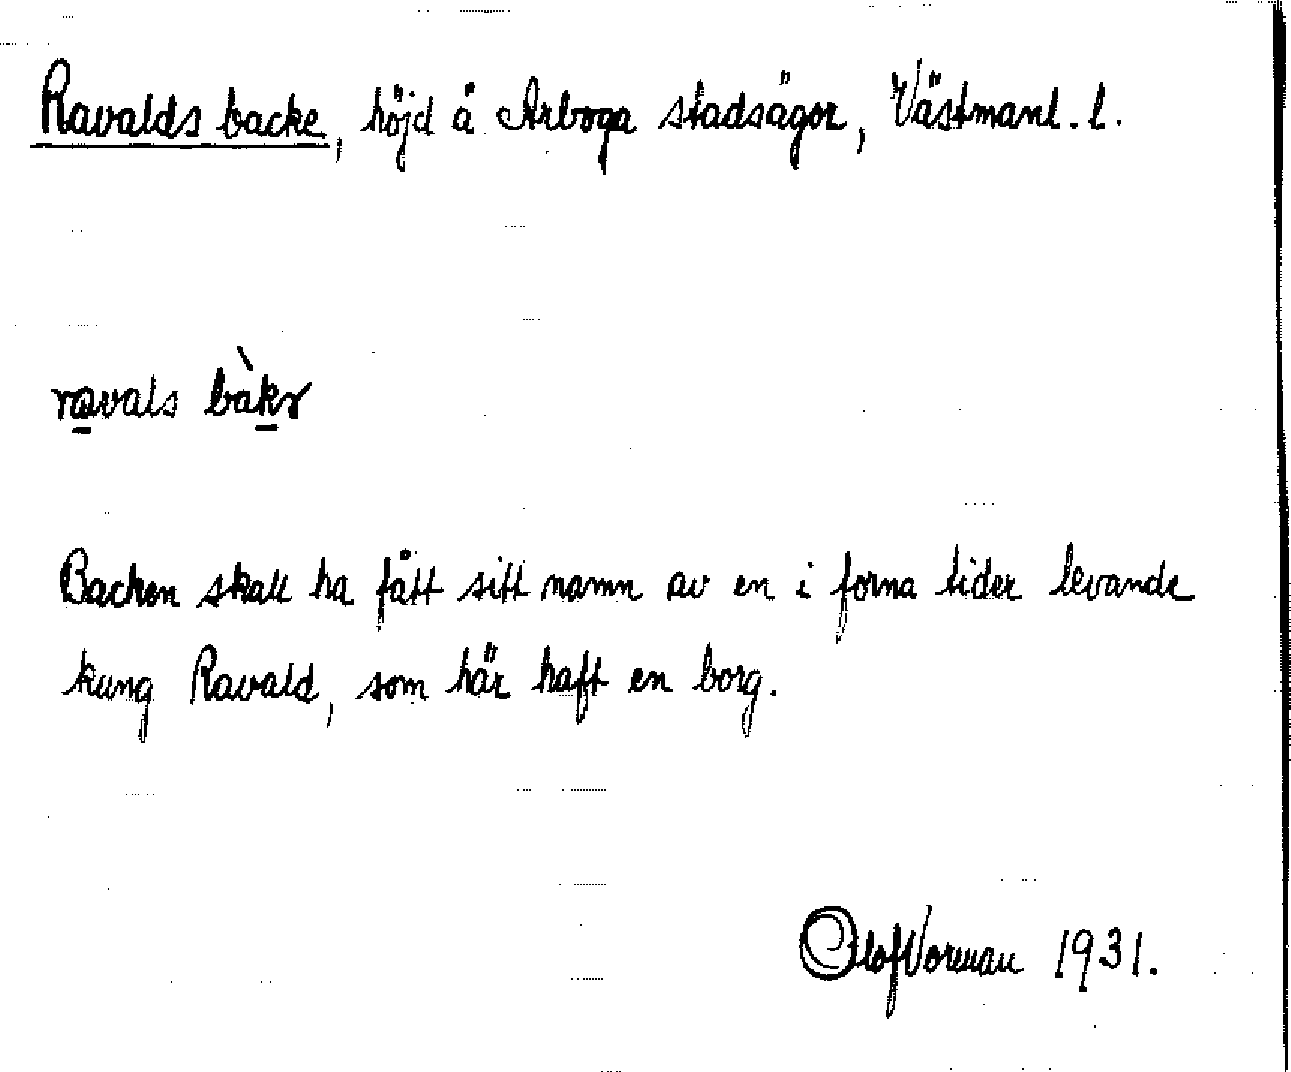 Ravalds backe, höjd å Arboga stadsägor, Västmanl. l.
ravals bàkɤ
Backen skall ha fått sitt namn av en i forna tider levande
kung Ravald, som här haft en borg.
Olof Vorman 1931.